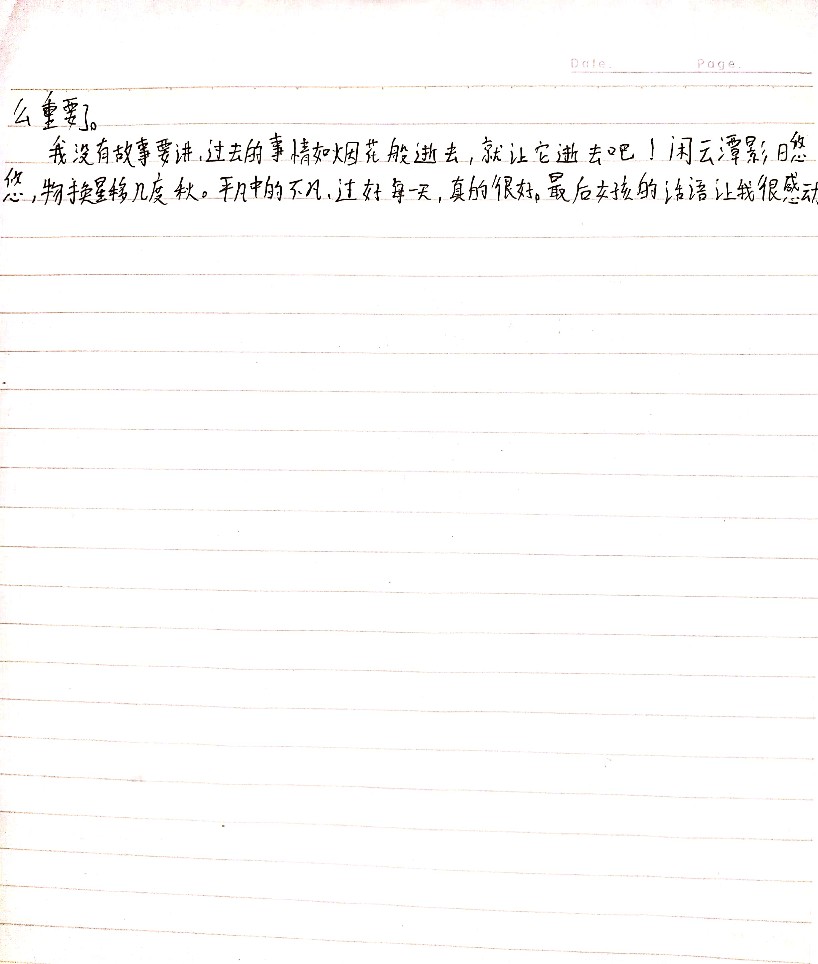 Date. Page.
么重要了。
我没有故事要讲,过去的事情如烟花般逝去,就让它逝去吧！闲云潭影日悠
悠,物换星移几度秋。平凡中的不凡,过好每一天,真的很好。最后女孩的话语让我很感动